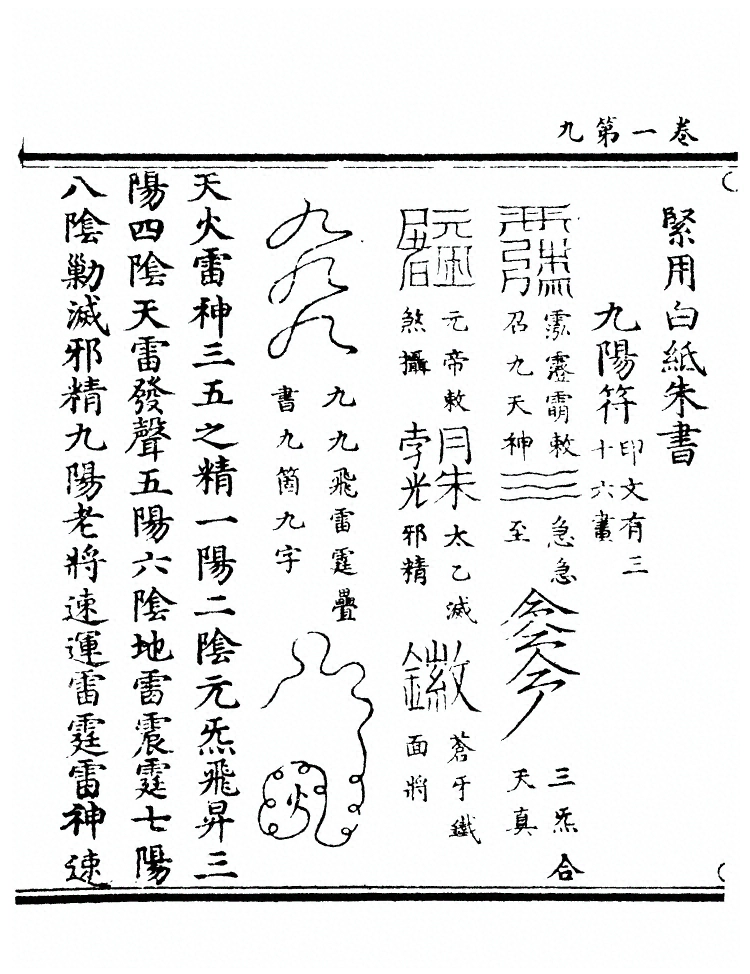 卷一第九
緊用白紙朱書
九陽符
印文有三
十六畫
敕
召九天神
急急
至
三炁合
天真
元帝敕
煞攝
太乙滅
邪精
蒼牙鐵
面將
九九九
九九飛雷霆疊
書九箇九字
火
天火雷神三五之精一陽二陰元炁飛昇三
陽四陰天雷發聲五陽六陰地雷震霆七陽
八陰勦滅邪精九陽老將速運雷霆雷神速